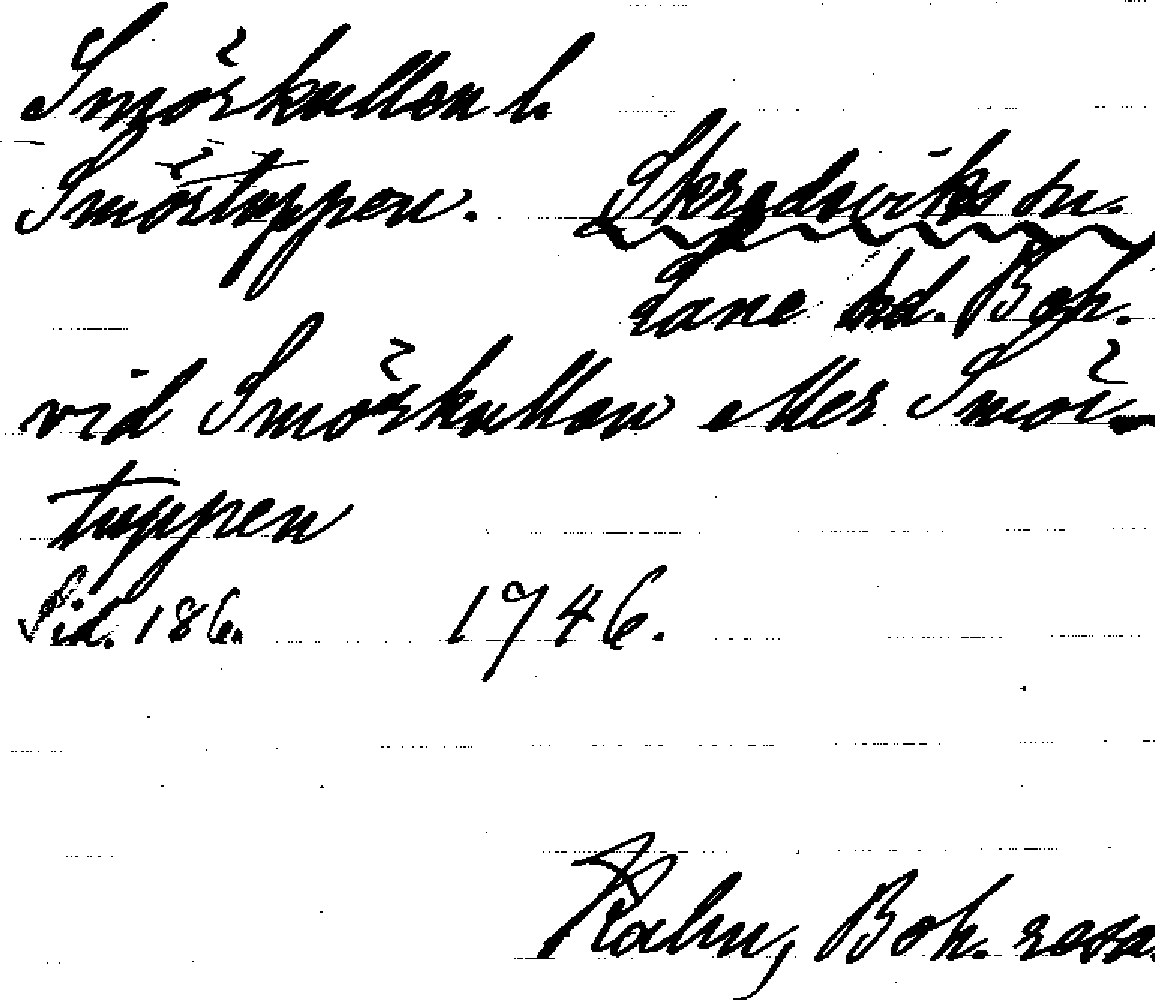 Smörkullen l.
Smörtuppen. Skredsviks sn.
Lane hd. Boh.
vid Smörkullen eller Smör-
tuppen
Sid. 186. 1746.
Kalm, Boh. resa.